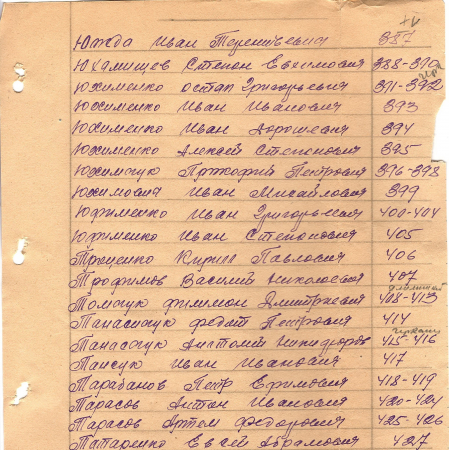 Южда Иван Терентьевич 387
Юхамищев Степан Евхимович 388-390
Юхименко Остап Григорьевич 391-392
Юхименко Иван Иванович 393
Юхименко Иван 394
Юхименко Алексей Степанович 395
Прокофий Петрович 396-398
Иван Михайлович 399
Юфименко Иван Григорьевич 400-404
Юфименко Иван Степанович 405
Кирилл Павлович 406
Трофимов Василий Николаевич 407
Филимон Дмитриевич 408-413
Федот Петрович 414
Анатолий Никифоров 415-416
Иван Иванович 417
Тарабанов Петр Ефимович 418-419
Тарасов Антон Иванович 420-424
Тарасов Артем Федорович 425-426
Татаренко Евсей Абрамович 427